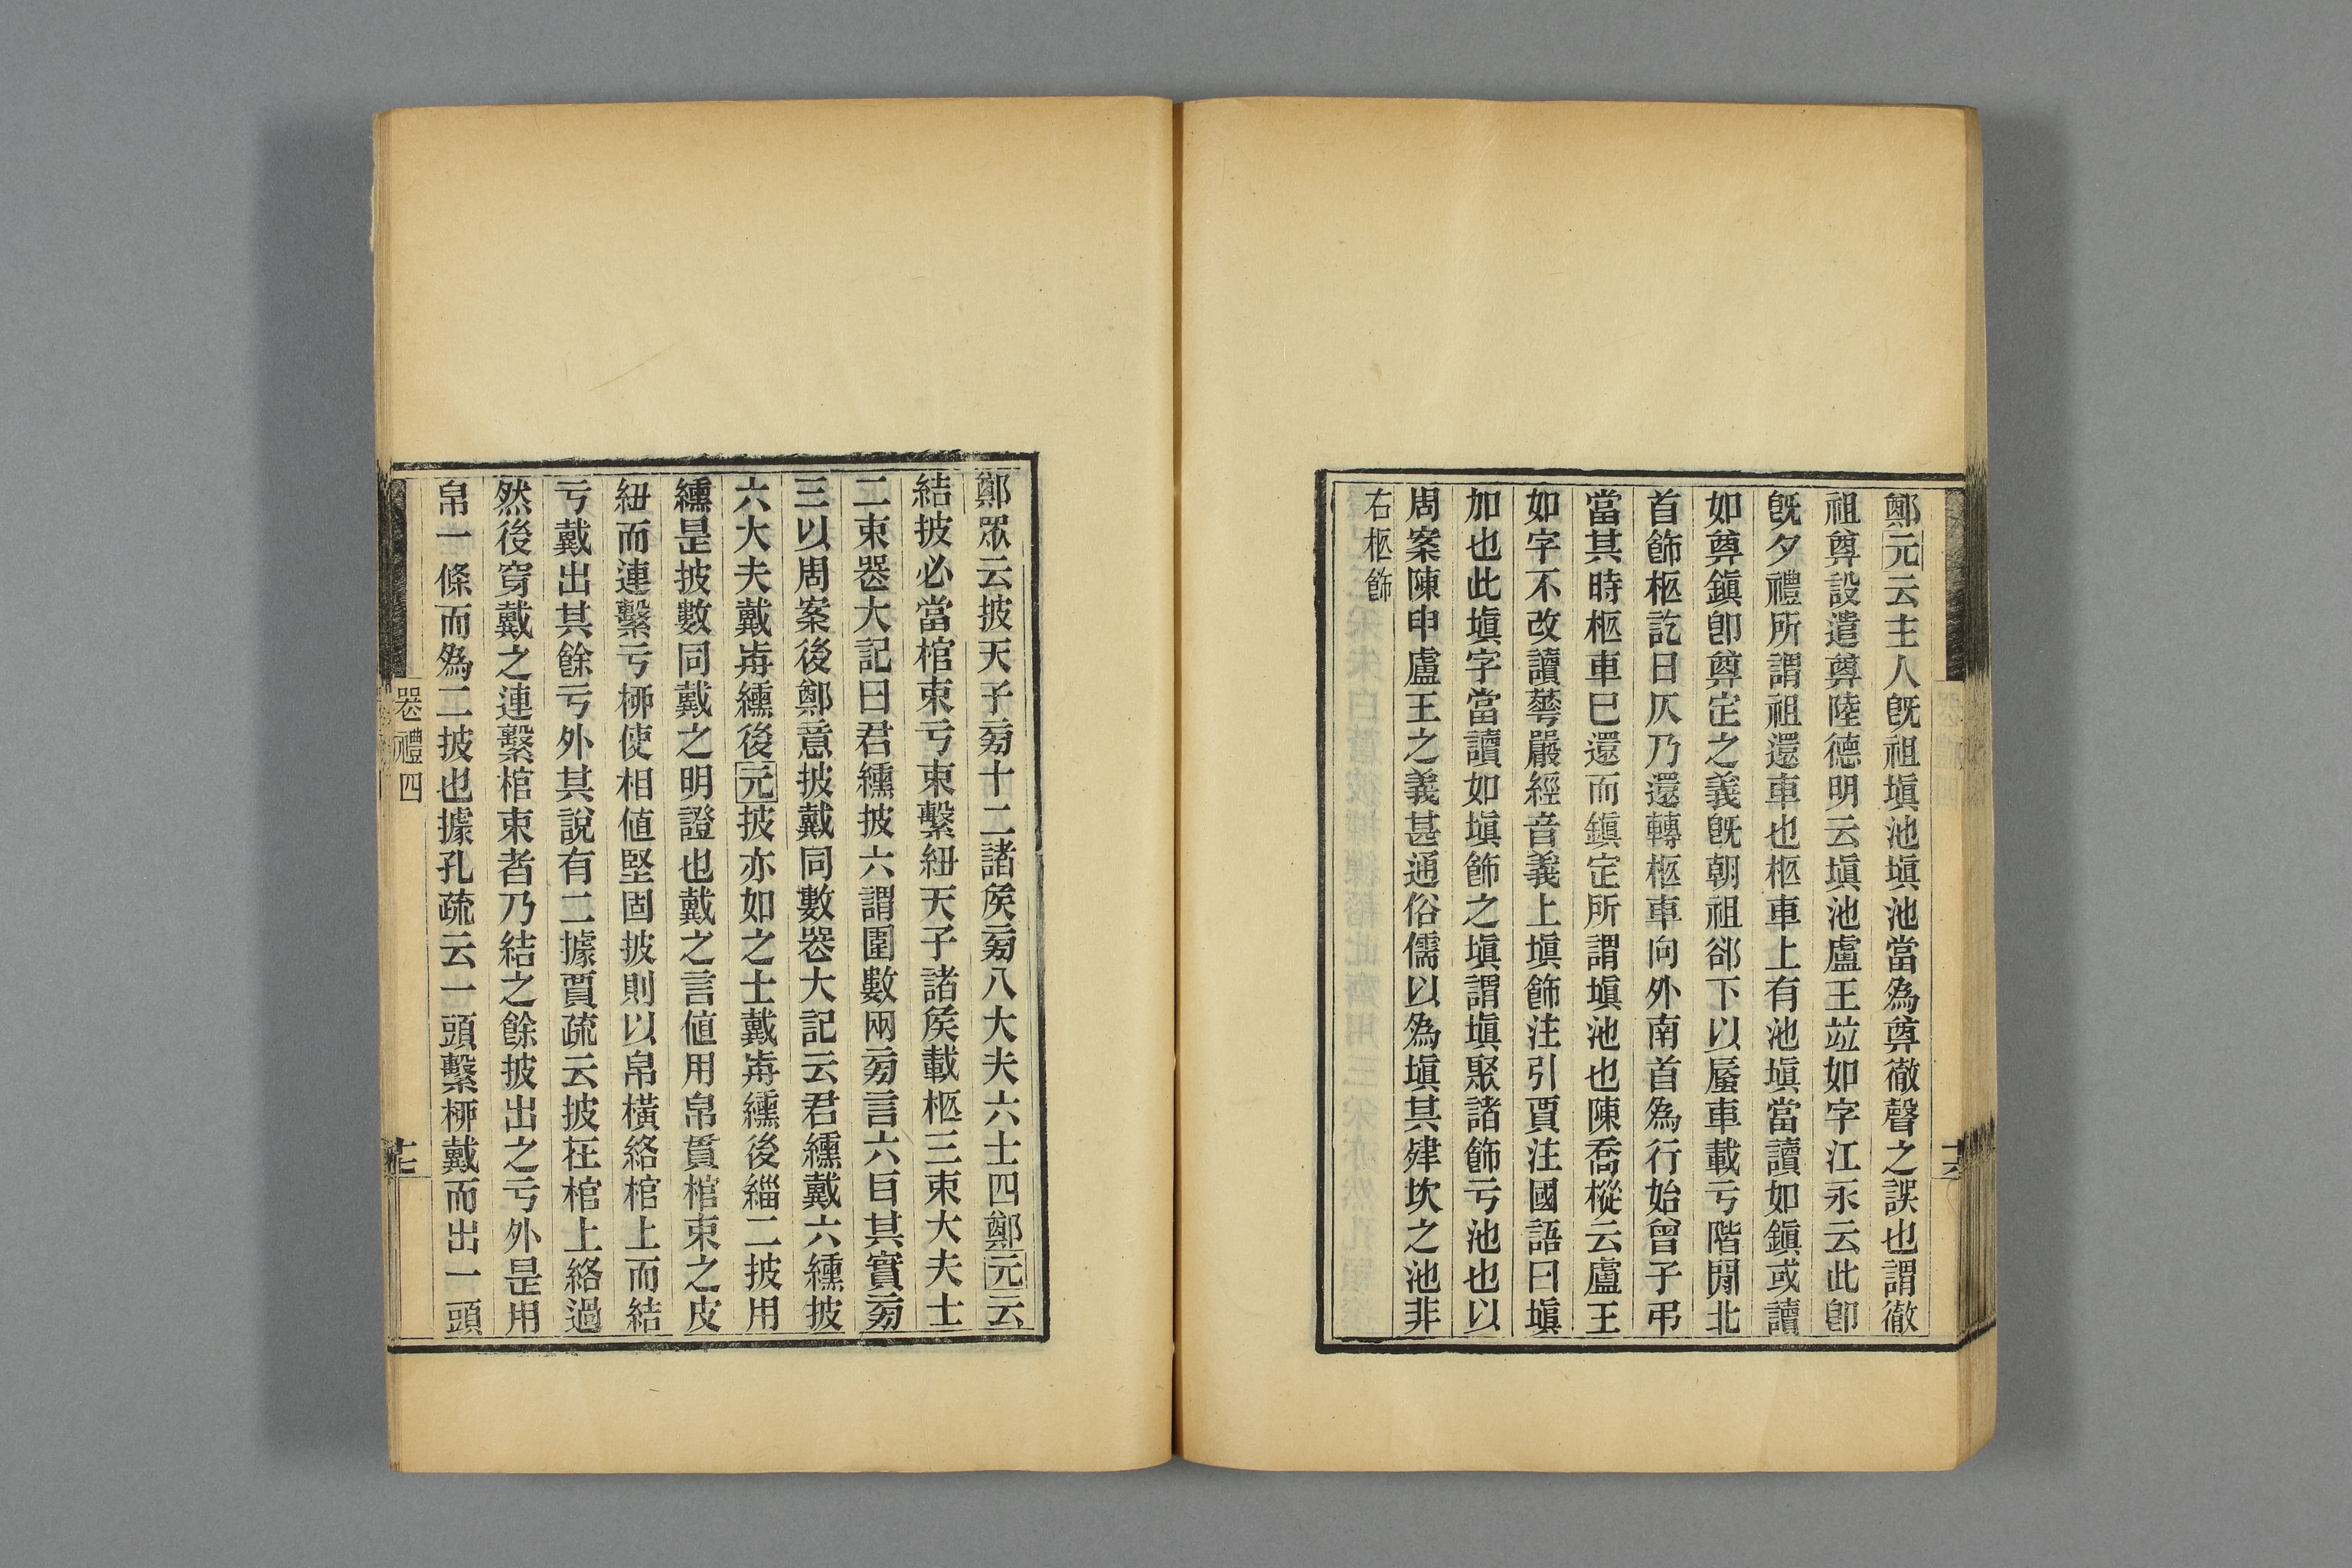 鄭元云主人旣祖塡池塡池當爲尊徹聲之誤也謂徹
祖尊設遣尊陸德明云塡池盧王竝如字江永云此卽
旣夕禮所謂祖還車也柩車上有池塡當讀如鎭或讀
如尊鎭卽尊定之義旣朝祖郤下以蜃車載亏階閒北
首飾柩訖日仄乃還轉柩車向外南首爲行始曾子弔
當其時柩車已還而鎭定所謂塡池也陳喬樅云盧王
如字不改讀蕚嚴經音義上塡飾注引賈注國語曰塡
加也此塡字當讀如塡飾之塡謂塡聚諸飾亏池也以
周案陳申盧王之義甚通俗儒以爲塡其肂坎之池非
右柩飾
鄭眾云披天子菊十二諸矦菊八大夫六士四鄭元云
結披必當棺束亏束繫紐天子諸矦載柩三束大夫士
二束喪大記曰君纁披六謂圍數兩菊言六目其實菊
三以周案後鄭意披戴同數喪大記云君纁戴六纁披
六大夫戴歬纁後元披亦如之士戴歬纁後緇二披用
纁是披數同戴之明證也戴之言値用帛貫棺束之皮
紐而連繫亏桺使相値堅固披則以帛橫絡棺上而結
亏戴出其餘亏外其說有二據賈疏云披在棺上絡過
然後穿戴之連繫棺束者乃結之餘披出之亏外是用
帛一條而爲二披也據孔疏云一頭繫桺戴而出一頭
喪禮四
十七
十六